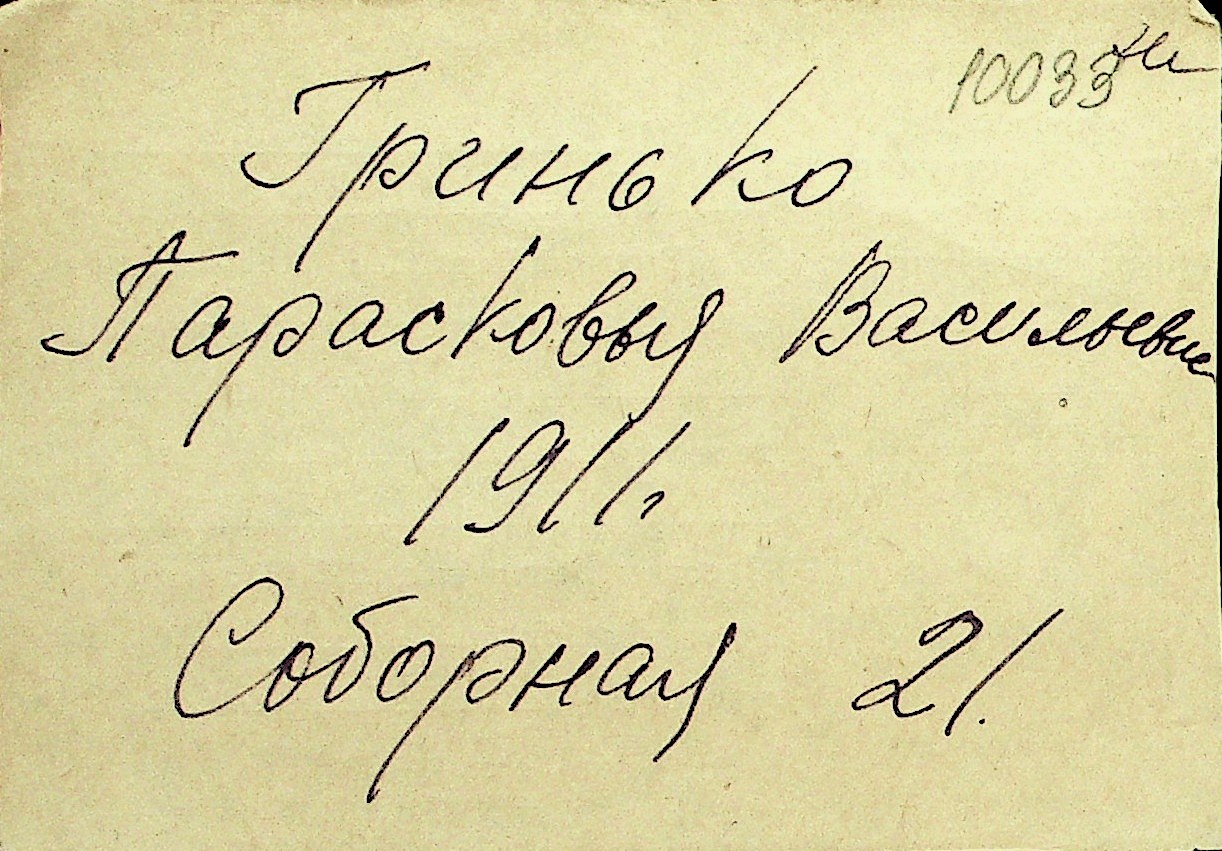 10033
Гринько
Парасковья Васильевна
1911г
Соборная 21.